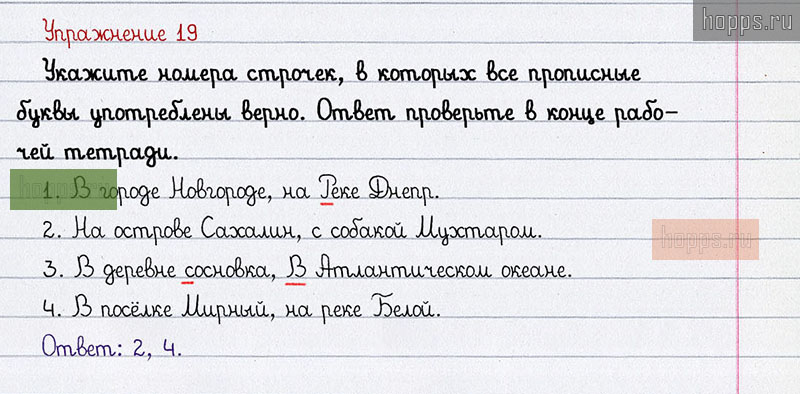 hopps.ru
Упражнение 19
Укажите номера строчек, в которых все прописные
буквы употреблены верно. Ответ проверьте в конце рабо-
чей тетради.
1. В городе Новгороде, на Реке Днепр.
2. На острове Сахалин, с собакой Мухтаром.
hopps.ru
3. В деревне сосновка, В Атлантическом океане.
4. В посёлке Мирный, на реке Белой.
Ответ: 2, 4.